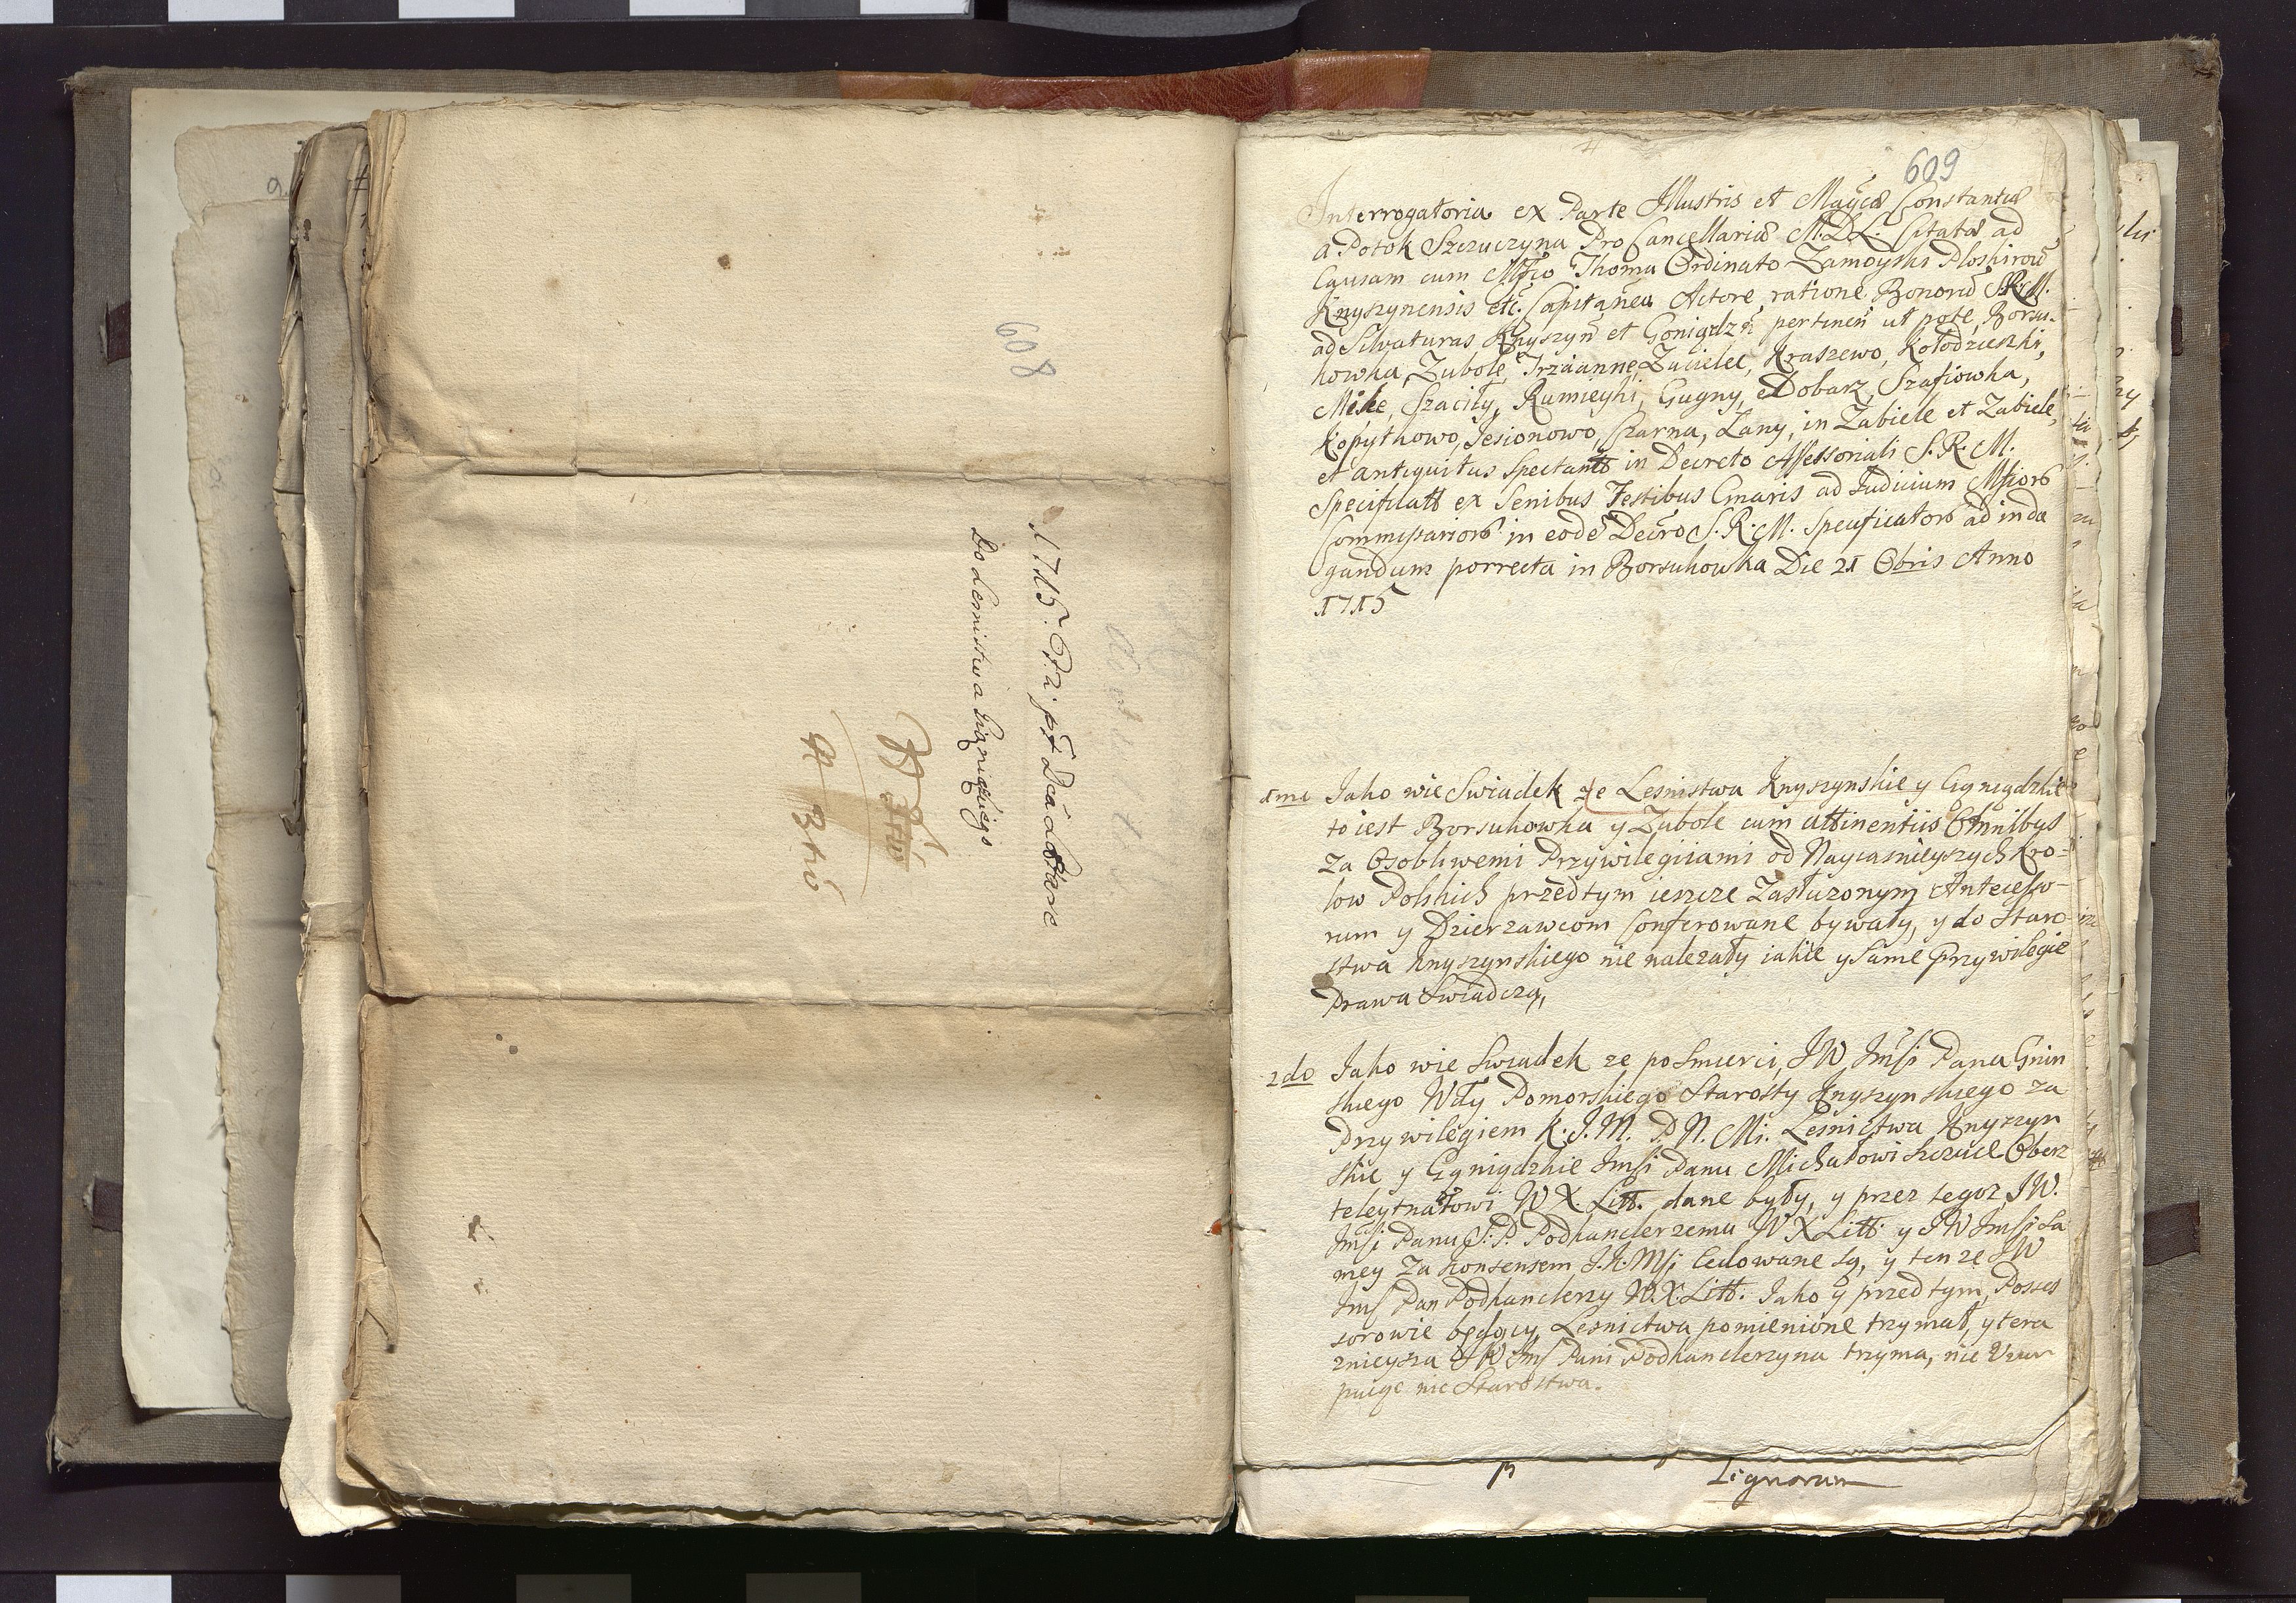 608
1715. Fra. pt Dca Lbare
Do Lesnistwa Gonigdzkiego
N 3tio
609
Interrogatoria ex Parte Illustris et Magcæ Constantiæ
a Potok Szczuczyna Pro Cancellariæ M.D.L. Citatæ ad
Causam cum Mfco Thoma Ordinato Zamoyski Ploskirow
Knyszynensis etc. Capitaneu Actore, ratione Bonorū S.R.M.
ad Silvaturas Knyszyn et Gonigdzn pertinen ut pote, Borsu-
kowka, Zubole, Trzcianne, Zucielec, Kraszewo, Kołodzieszki,
Mike, Szaciły, Rumieyki, Gugny, et Dobarz, Szafiowka,
Kopytkowo, Jesionowo, Czarna, Lany, in Zabiele et Zabiele,
et antiquitus Spectantt in Decreto Assessoriali S. R. M.
Specificatt ex Senibus Testibus Gnaris ad Judicium Mficorō
Commissariorō in eodē Decro S.R.M. Specificatorō ad inda
gandum porrecta in Borsukowka Die 21 Obris Anno
1715
1mo Jako wie Swiadek ze Lesnistwa Knyszynskie y Gonigdzkie
to iest Borsukowka y Zubole cum attinentiis Omnibus
za Osobliwemi Przywilegiiami od Nayiasnieyszych Kro-
low Polskich przedtym ieszcze Zasłuzonym Antecesso-
rum y Dzierzawcom Conferowane bywały, y do Staro-
stwa Knyszynskiego nie nalezały iakie y Same Przywilegie
Prawa Swiadczą,
2do Jako wie Swiadek ze po Smierci, JW Jmści Pana Gnin
skiego Wdy Pomorskiego Starosty Knyszynskiego za
Przywilegiem K. J. M. P. N. Mi. Lesnictwa Knyszyn
skie y Gonigdzkie Jmsi Panu Michałowi Szczuce Ober
teleytnatowi W X Litt. dane były, y przez tegoz JW.
Jmsi Panu S: P. Podkanclerzemu W X Litt. y JW Jmsi Sa
mey za Konsensem J. K. Msi Cedowane są, y tenze JW
Jms Pan Podkanclerzy W. X. Litt. Jako y przedtym, Posses
sorowie będący, Lesnictwa pomienione trzymał, y tera
znieysza JW Jms Pani Podkanclerzyna trzyma, nie Uzur
puiąc nic Starostwa.
Lignorum